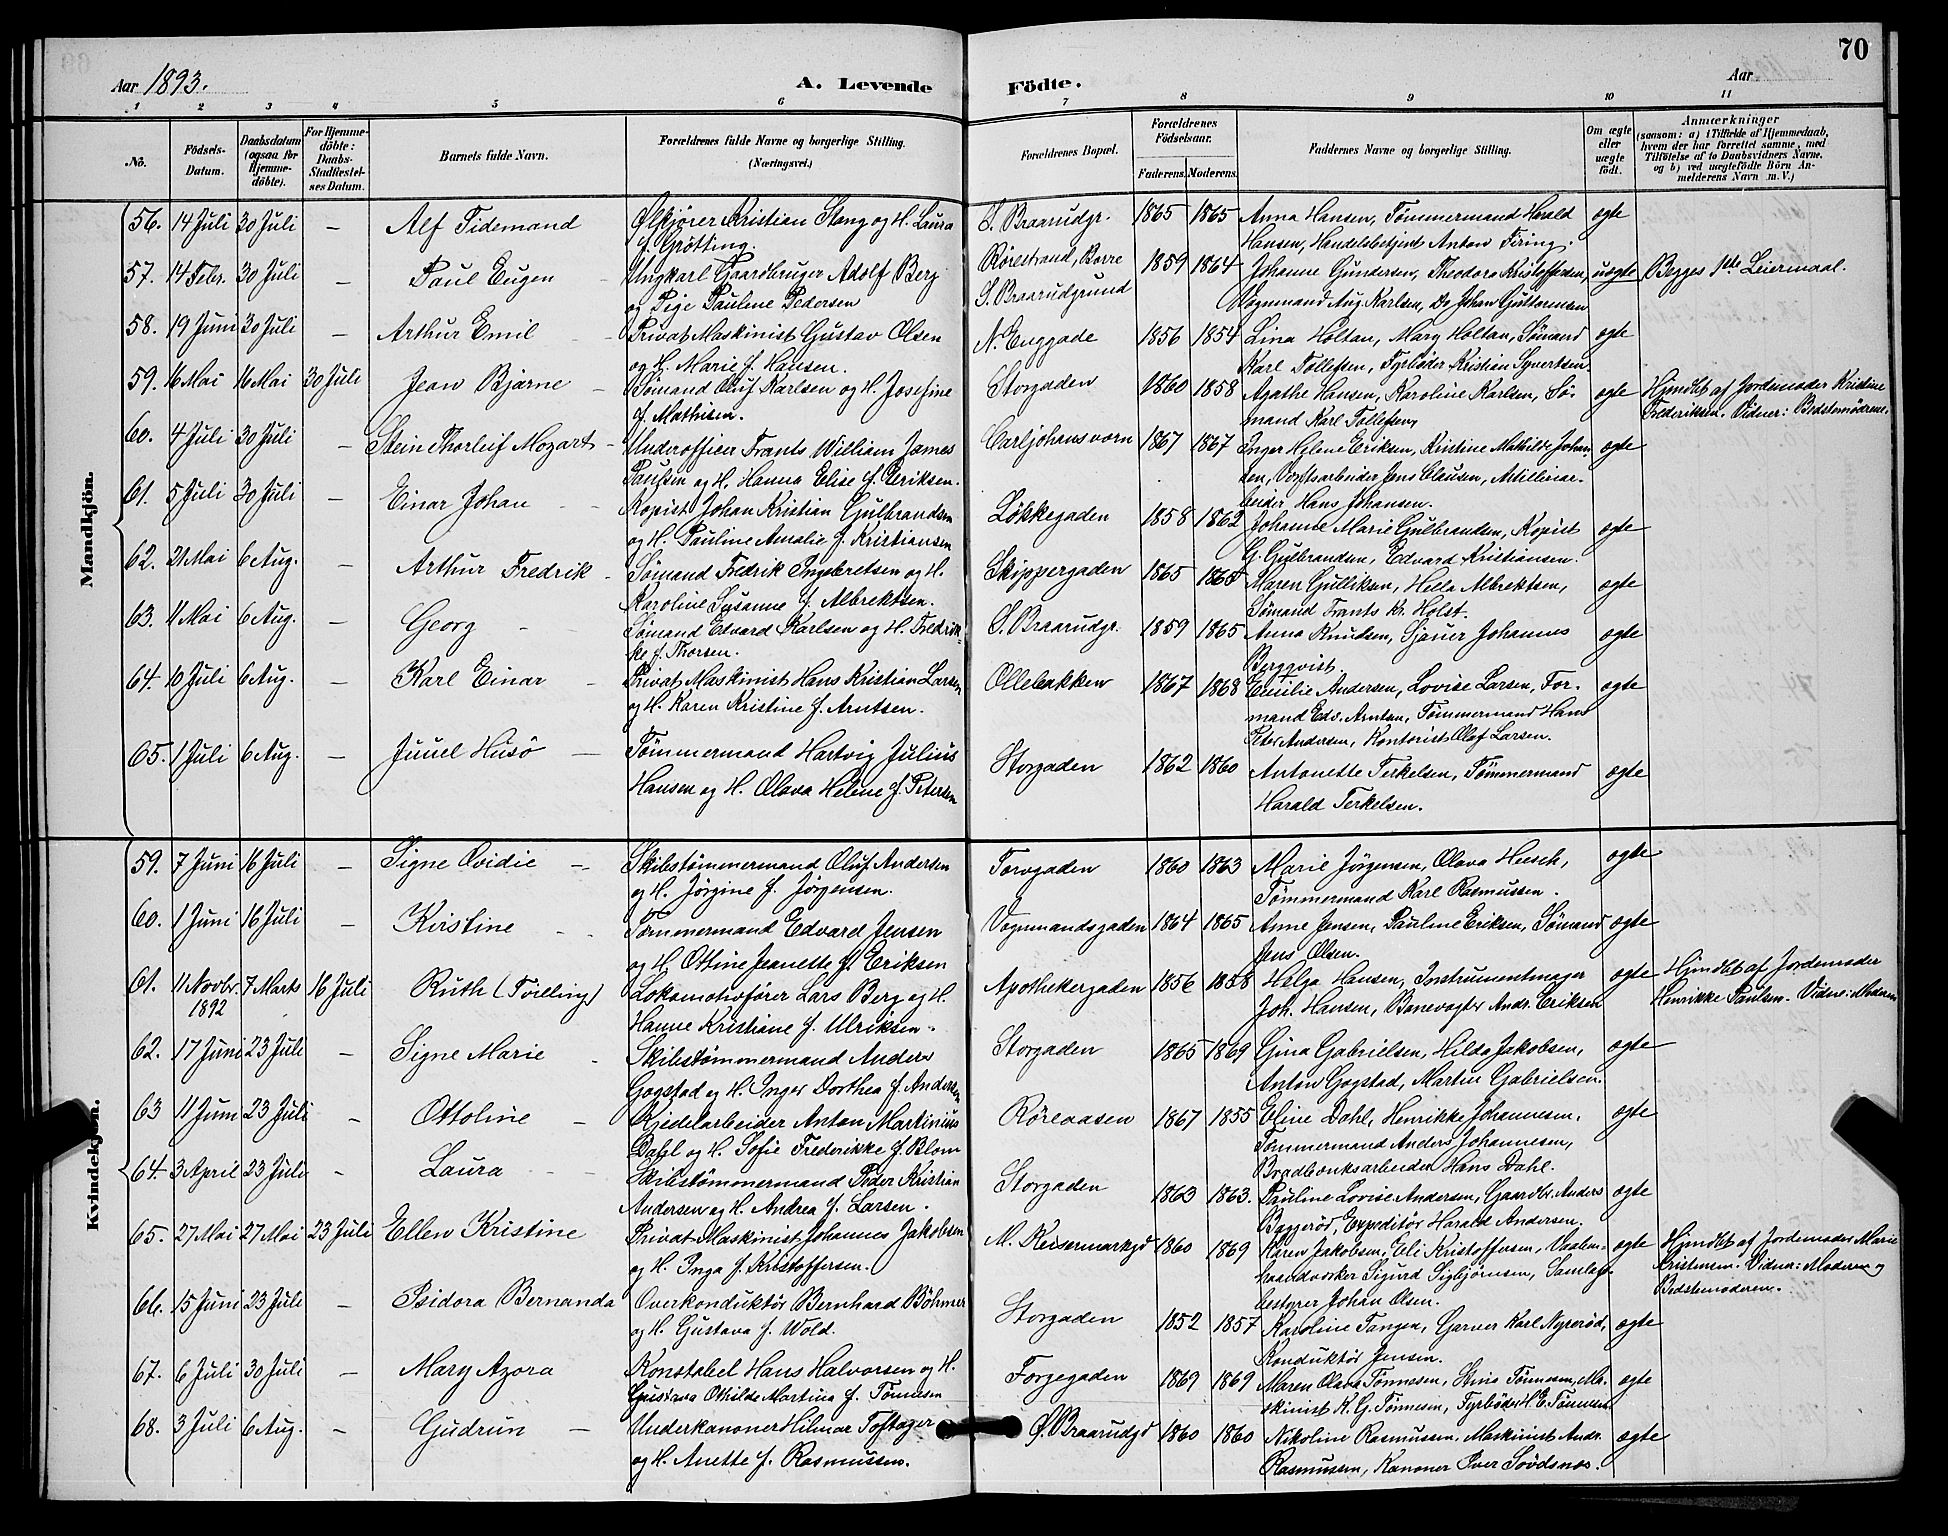 70
Aar 1893.
A. Levende Födte.
Aar
1 2 3 4 5 6 7 8 9 10 11
No.
Födsels-Datum.
Daabsdatum (ogsaa for Hjemmedöbte).
For Hjemmedöbte: Daabs-Stadfæstelses Datum.
Barnets fulde Navn.
Forældrenes fulde Navne og borgerlige Stilling. (Næringsvei.)
Forældrenes Bopæl.
Forældrenes Födselsaar.
Faderens. Moderens.
Faddernes Navne og borgerlige Stilling.
Om ægte eller uægte født.
Anmærkninger
(saasom: a) i Tilfælde af Hjemmedaab, hvem der har forrettet samme, med Tilföielse af to Daabsvidners Navne, og b) ved uægtefödte Börn Anmelderens Navn m. V.)
Mandkjön.
56. 14 Juli 30 Juli — Alf Tidemand Ølkjører Kristian Stang og H. Laura f. Grötting. S. Braarudgr. 1865 1865 Anna Hansen, Tømmermand Harald Hansen, Handelsbetjent Anton Firing. ægte
57. 14 Febr. 30 Juli — Paul Eugen Ungkarl Gaardbruger Adolf Berg og Pige Pauline Pedersen Rørestrand, Borre S. Braarudgrund 1859 1864 Johanne Gundersen, Theodora Kristoffersen, Vognmand Aug. Karlsen, Do Johan Guttormsen uægte Begges 1ste Leiermaal.
58. 19 Juni 30 Juli — Arthur Emil Privat Maskinist Gustav Olsen og H. Marie f. Hansen. N. Enggade 1856 1854 Lina Holtan, Mary Holtan, Sømand Karl Tollefsen, Fyrbøder Kristian Synertsen ægte
59. 16 Mai 16 Mai 30 Juli Jean Bjarne Sømand Oluf Karlsen og H. Josefine f. Mathisen. Storgaden 1860 1858 Agathe Hansen, Karoline Karlsen, Sømand Karl Tollefsen, ægte Hjmdbt af Jordemoder Kristine Frederiksen. Vidner: Bedstemødrene.
60. 4 Juli 30 Juli — Stein Thorleif Mozart Underofficer Frants William James Paulsen og H. Hanna Elise f. Eriksen. Carljohansværn 1867 1867 Inger Helene Eriksen, Kristine Mathilde Johansen, Værftsarbeider Jens Clausen, Artilleriarbeider Hans Johansen. ægte
61. 5 Juli 30 Juli — Einar Johan Kopist Johan Kristian Gulbrandsen og H. Pauline Amalie f. Kristiansen Løkkegaden 1858 1862 Johanne Marie Gulbrandsen, Kopist G. Gulbrandsen, Edvard Kristiansen. ægte
62. 21 Mai 6 Aug. — Arthur Fredrik Sømand Fredrik Ingebretsen og H. Karoline Susanne f. Albrektsen. Skippergaden 1865 1868 Maren Gulliksen, Hella Albrektsen, Sømand Frants Kr. Holst. ægte
63. 11 Mai 6 Aug. — Georg Sømand Edvard Karlsen og H. Fredrikke f. Thorsen. S. Braarudgr. 1859 1865 Anna Knudsen, Sjauer Johannes Bergqvist. ægte
64. 10 Juli 6 Aug. — Karl Einar Privat Maskinist Hans Kristian Larsen og H. Karen Kristine f. Arntsen. Ollebakken 1867 1868 Emilie Andersen, Lovise Larsen, Formand Edv. Arntsen, Tømmermand Hans Peter Andersen, Kontorist Olaf Larsen. ægte
65. 1 Juli 6 Aug. — Juuel Husö Tömmermand Hartvig Julius Hansen og H. Olava Helene f. Petersen Storgaden 1862 1860 Antonette Terkelsen, Tømmermand Harald Terkelsen. ægte
Kvindekjön.
59. 7 Juni 16 Juli — Signe Ovidie Skibstømmermand Oluf Andersen og H. Jørgine f. Jørgensen. Torvgaden 1860 1863 Marie Jørgensen, Olava Heesch, Tömmermand Karl Rasmussen. ægte
60. 1 Juni 16 Juli — Kristine Tømmermand Edvard Jensen og H. Ottine Jeanette f. Eriksen Vognmandsgaden 1864 1865 Anne Jensen, Pauline Eriksen, Sømand Jens Olsen. ægte
61. 11 Novbr. 1892 7 Marts 16 Juli Ruth (Tvilling) Lokomotivfører Lars Berg og H. Hanne Kristiane f. Ulriksen. Apothekergaden 1856 1858 Helga Hansen, Instrumentmager Joh. Hansen, Banevogter Andr. Eriksen ægte Hjmdbt af Jordemoder Henrikke Paulsen. Vidne: Moderen
62. 17 Juni 23 Juli — Signe Marie Skibstømmermand Anders Gogstad og H. Inger Dorthea f. Andersen Storgaden 1865 1869 Gina Gabrielsen, Hilda Jakobsen, Anton Gogstad, Martin Gabrielsen. ægte
63 11 Juni 23 Juli — Ottoline Kjedelarbeider Anton Martinius Dahl og H. Sofie Frederikke f. Blom Röreaasen 1867 1855 Eline Dahl, Henrikke Johannesen, Tømmermand Anders Johannesen, Bradbænksarbeider Hans Dahl. ægte
64. 3 April 23 Juli — Laura Skibstømmermand Peder Kristian Andersen og H. Andrea f. Larsen. Storgaden 1863 1863. Pauline Lovise Andersen, Gaardbr. Anders Baggerød, Expeditör Harald Andersen. ægte
65. 27 Mai 27 Mai 23 Juli Ellen Kristine Privat Maskinist Johannes Jakobsen og H. Inga f. Kristoffersen. M. Keisermarkgd 1860 1869 Karen Jakobsen, Eli Kristoffersen, Vaabenhaandværker Sigurd Sigbjørnsen, Samlagsbestyrer Johan Olsen. ægte Hjmdbt af Jordemoder Marie Kristensen. Vidner: Moderen og Bedstemoderen.
66. 15 Juni 23 Juli — Isidora Bernanda Overkonduktör Bernhard Böhmer og H. Gustava f. Wold. Storgaden 1852 1857 Karoline Tangen, Garver Karl Nyrerød, Konduktör Jensen. ægte
67. 6 Juli 30 Juli — Mary Azora Konstabel Hans Halvorsen og H. Gustava Othilde Martina f. Tønnesen Torgegaden 1869 1869 Maren Olava Tønnesen, Stina Tönnesen, Maskinist K. G. Tønnesen, Fyrbøder H. E. Tønnesen ægte
68. 3 Juli 6 Aug. — Gudrun Underkanoner Hilmar Toftager og H. Anette f. Rasmussen. Ø. Braarudgd 1860 1860 Nikoline Rasmussen, Maskinist Andr. Rasmussen, Kanoner Iver Sövdsnæs. ægte